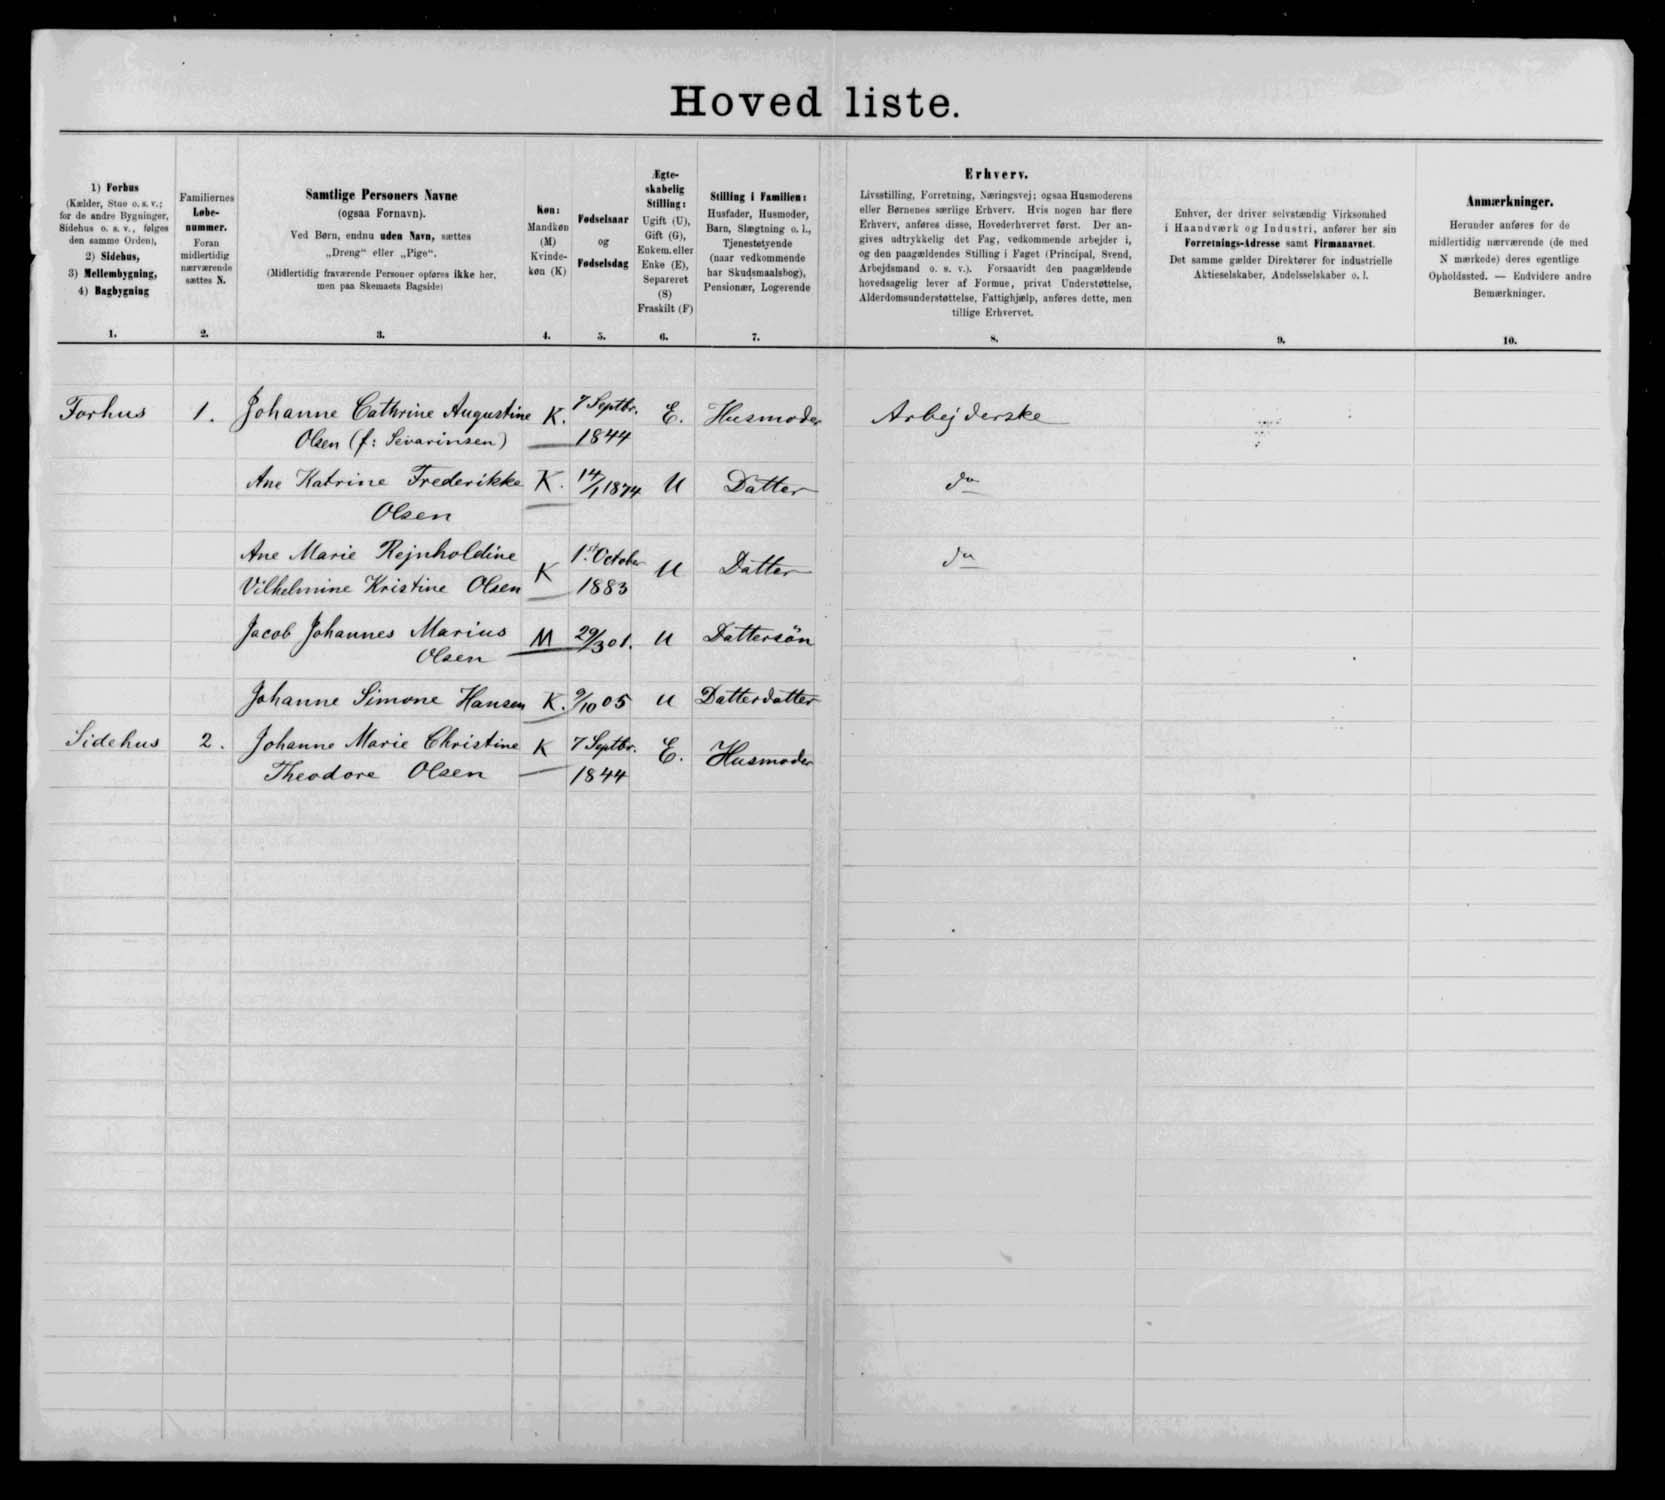 Hovedliste.
1) Forhus
(Kælder, Stue o. s. v.;
for de andre Bygninger,
Sidehus o. s. v., følges
den samme Orden),
2) Sidehus,
3) Mellembygning,
4) Bagbygning
1.
Familiernes
Løbe-
nummer.
Foran
midlertidig
nærværende
sættes N.
2.
Samtlige Personers Navne
(ogsaa Fornavn).
Ved Børn, endnu uden Navn, sættes
„Dreng“ eller „Pige“.
(Midlertidig fraværende Personer opføres ikke her,
men paa Skemaets Bagside)
3.
Køn:
Mandkøn
(M)
Kvinde-
køn (K)
4.
Fødselsaar
og
Fødselsdag
5.
Ægte-
skabelig
Stilling:
Ugift (U),
Gift (G),
Enkem. eller
Enke (E),
Separeret
(S)
Fraskilt (F)
6.
Stilling i Familien:
Husfader, Husmoder,
Barn, Slægtning o. l.,
Tjenestetyende
(naar vedkommende
har Skudsmaalsbog),
Pensionær, Logerende
7.
Erhverv.
Livsstilling, Forretning, Næringsvej; ogsaa Husmoderens
eller Børnenes særlige Erhverv. Hvis nogen har flere
Erhverv, anføres disse, Hovederhvervet først. Der an-
gives udtrykkelig det Fag, vedkommende arbejder i,
og den paagældendes Stilling i Faget (Principal, Svend,
Arbejdsmand o. s. v.). Forsaavidt den paagældende
hovedsagelig lever af Formue, privat Understøttelse,
Alderdomsunderstøttelse, Fattighjælp, anføres dette, men
tillige Erhvervet.
8.
Enhver, der driver selvstændig Virksomhed
i Haandværk og Industri, anfører her sin
Forretnings-Adresse samt Firmanavnet.
Det samme gælder Direktører for industrielle
Aktieselskaber, Andelsselskaber o. l.
9.
Anmærkninger.
Herunder anføres for de
midlertidig nærværende (de med
N mærkede) deres egentlige
Opholdssted. — Endvidere andre
Bemærkninger.
10.
Forhus 1. Johanne Cathrine Augustine K. 7 Septbr. E. Husmoder Arbejderske
Olsen (f: Sevarinsen) 1844
Ane Katrine Frederikke K. 14/1 1874 U Datter do
Olsen
Ane Marie Rejnholdine K 1st October U Datter do
Vilhelmine Kristine Olsen 1883
Jacob Johannes Marius M 29/3 01. U Dattersön
Olsen
Johanne Simone Hansen K. 9/10 05 U Datterdatter
Sidehus 2. Johanne Marie Christine K 7 Septbr. E. Husmoder
Theodore Olsen 1844